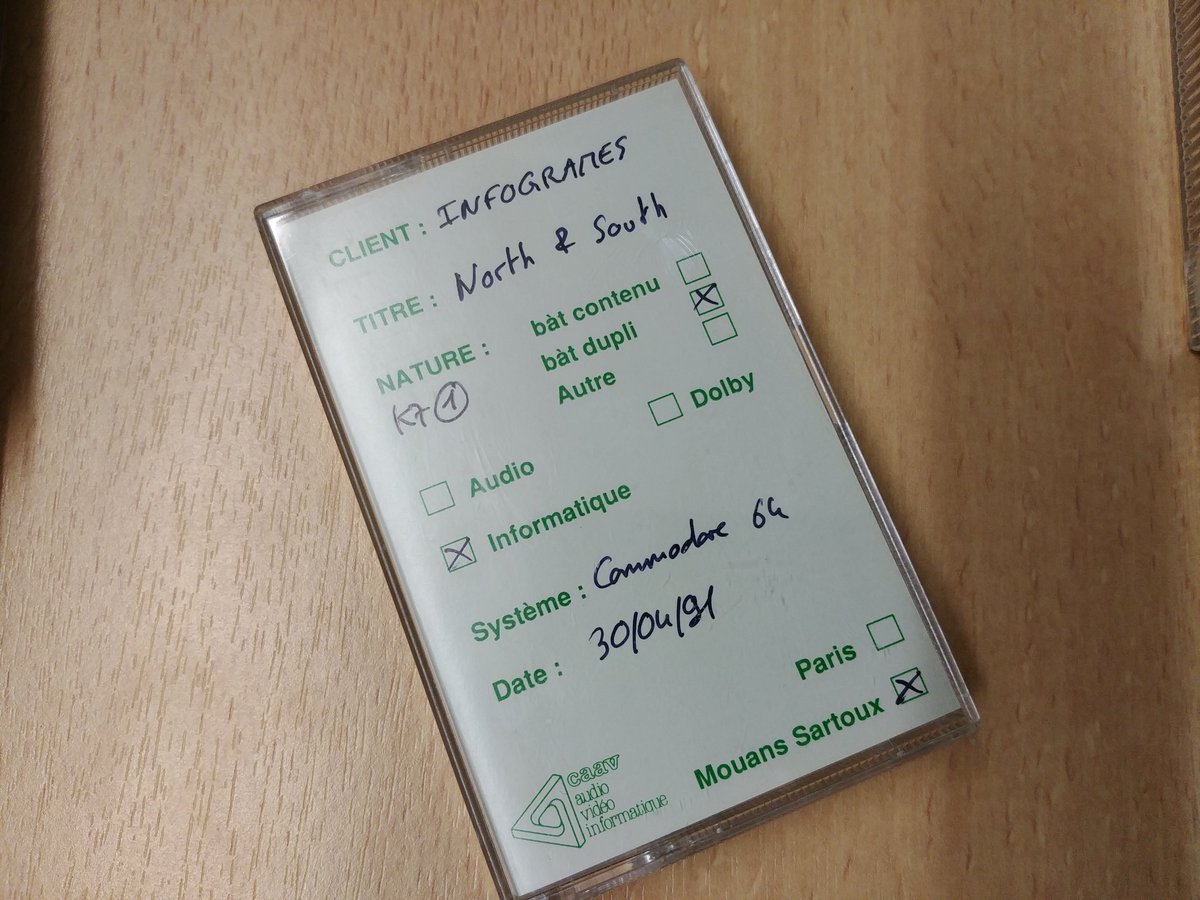 CLIENT : INFOGRAMES
TITRE : North & South
NATURE : bàt contenu
bàt dupli
K7 1 Autre
Dolby
Audio
Informatique
Système : Commodore 64
Date : 30/04/91
Paris
Mouans Sartoux
caav
audio
vidéo
informatique